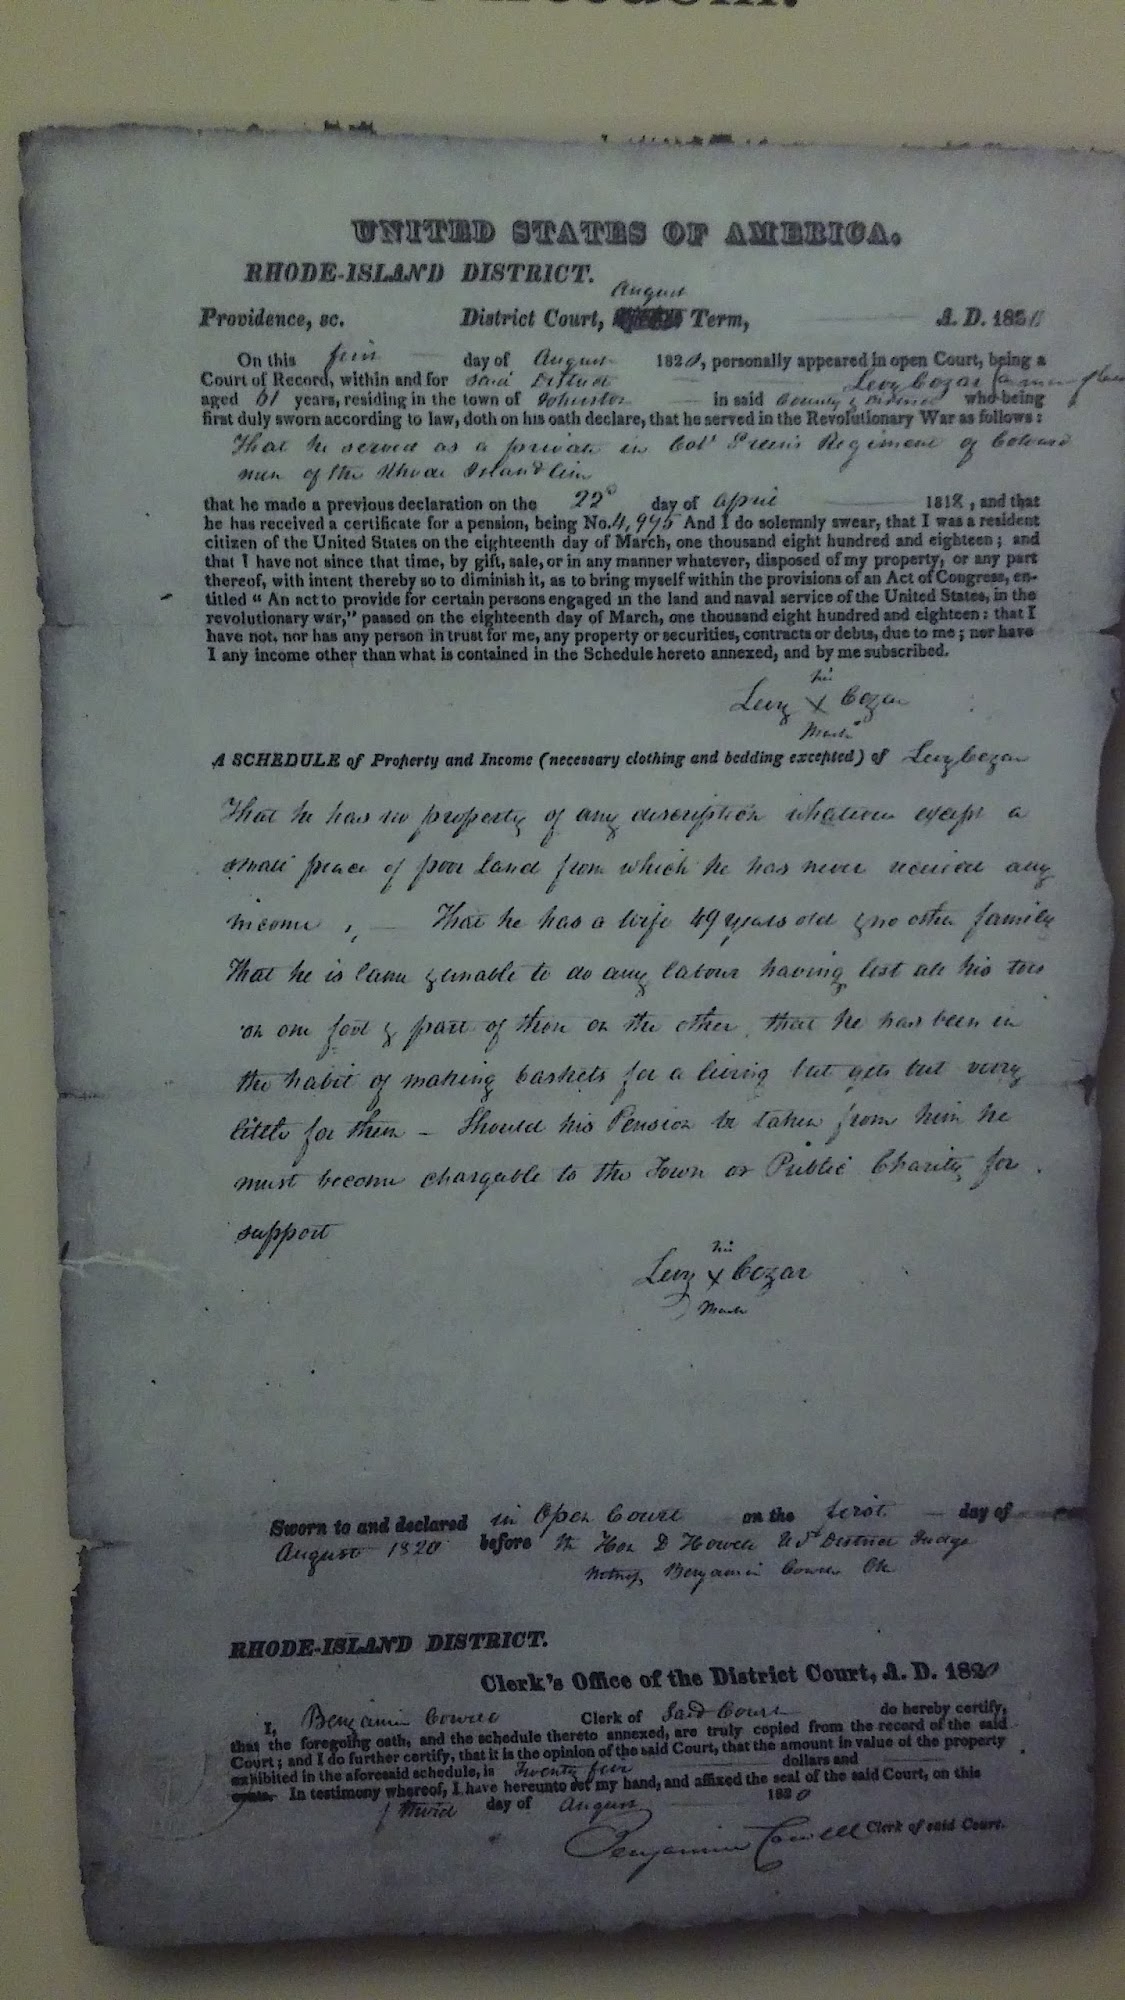 UNITED STATES OF AMERICA.
RHODE-ISLAND DISTRICT.
August
Providence, sc. District Court, Term, A. D. 1820
On this first day of August 1820, personally appeared in open Court, being a
Court of Record, within and for said District Levy Cozar (a man of
aged 61 years, residing in the town of Johnston in said County & District who being
first duly sworn according to law, doth on his oath declare, that he served in the Revolutionary War as follows:
That he served as a private in Col. Green's Regiment of Coloured
men of the Rhode Island line
that he made a previous declaration on the 22d day of April 1818, and that
he has received a certificate for a pension, being No. 4,995 And I do solemnly swear, that I was a resident
citizen of the United States on the eighteenth day of March, one thousand eight hundred and eighteen; and
that I have not since that time, by gift, sale, or in any manner whatever, disposed of my property, or any part
thereof, with intent thereby so to diminish it, as to bring myself within the provisions of an Act of Congress, en-
titled “ An act to provide for certain persons engaged in the land and naval service of the United States, in the
revolutionary war,” passed on the eighteenth day of March, one thousand eight hundred and eighteen: that I
have not, nor has any person in trust for me, any property or securities, contracts or debts, due to me; nor have
I any income other than what is contained in the Schedule hereto annexed, and by me subscribed.
his
Levy X Cozar
Mark
A SCHEDULE of Property and Income (necessary clothing and bedding excepted) of Levy Cozar
That he has no property of any description whatever except a
small peace of poor Land from which he has never received any
income, — That he has a wife 49 years old & no other family
That he is lame & unable to do any labour having lost all his toes
on one foot & part of them on the other, that he has been in
the habit of making baskets for a living but gets but very
little for them — Should his Pension be taken from him he
must become chargable to the Town or Public Charity for
support
his
Levy X Cozar
Mark
Sworn to and declared in Open Court on the first day of
August 1820 before the Hon D Howell US District Judge
Witness, Benjamin Cowell Clk
RHODE-ISLAND DISTRICT.
Clerk's Office of the District Court, A. D. 1820
I, Benjamin Cowell Clerk of Said Court do hereby certify,
that the foregoing oath, and the schedule thereto annexed, are truly copied from the record of the said
Court; and I do further certify, that it is the opinion of the said Court, that the amount in value of the property
exhibited in the aforesaid schedule, is Twenty five dollars and
cents. In testimony whereof, I have hereunto set my hand, and affixed the seal of the said Court, on this
third day of August 1820
Benjamin Cowell Clerk of said Court.